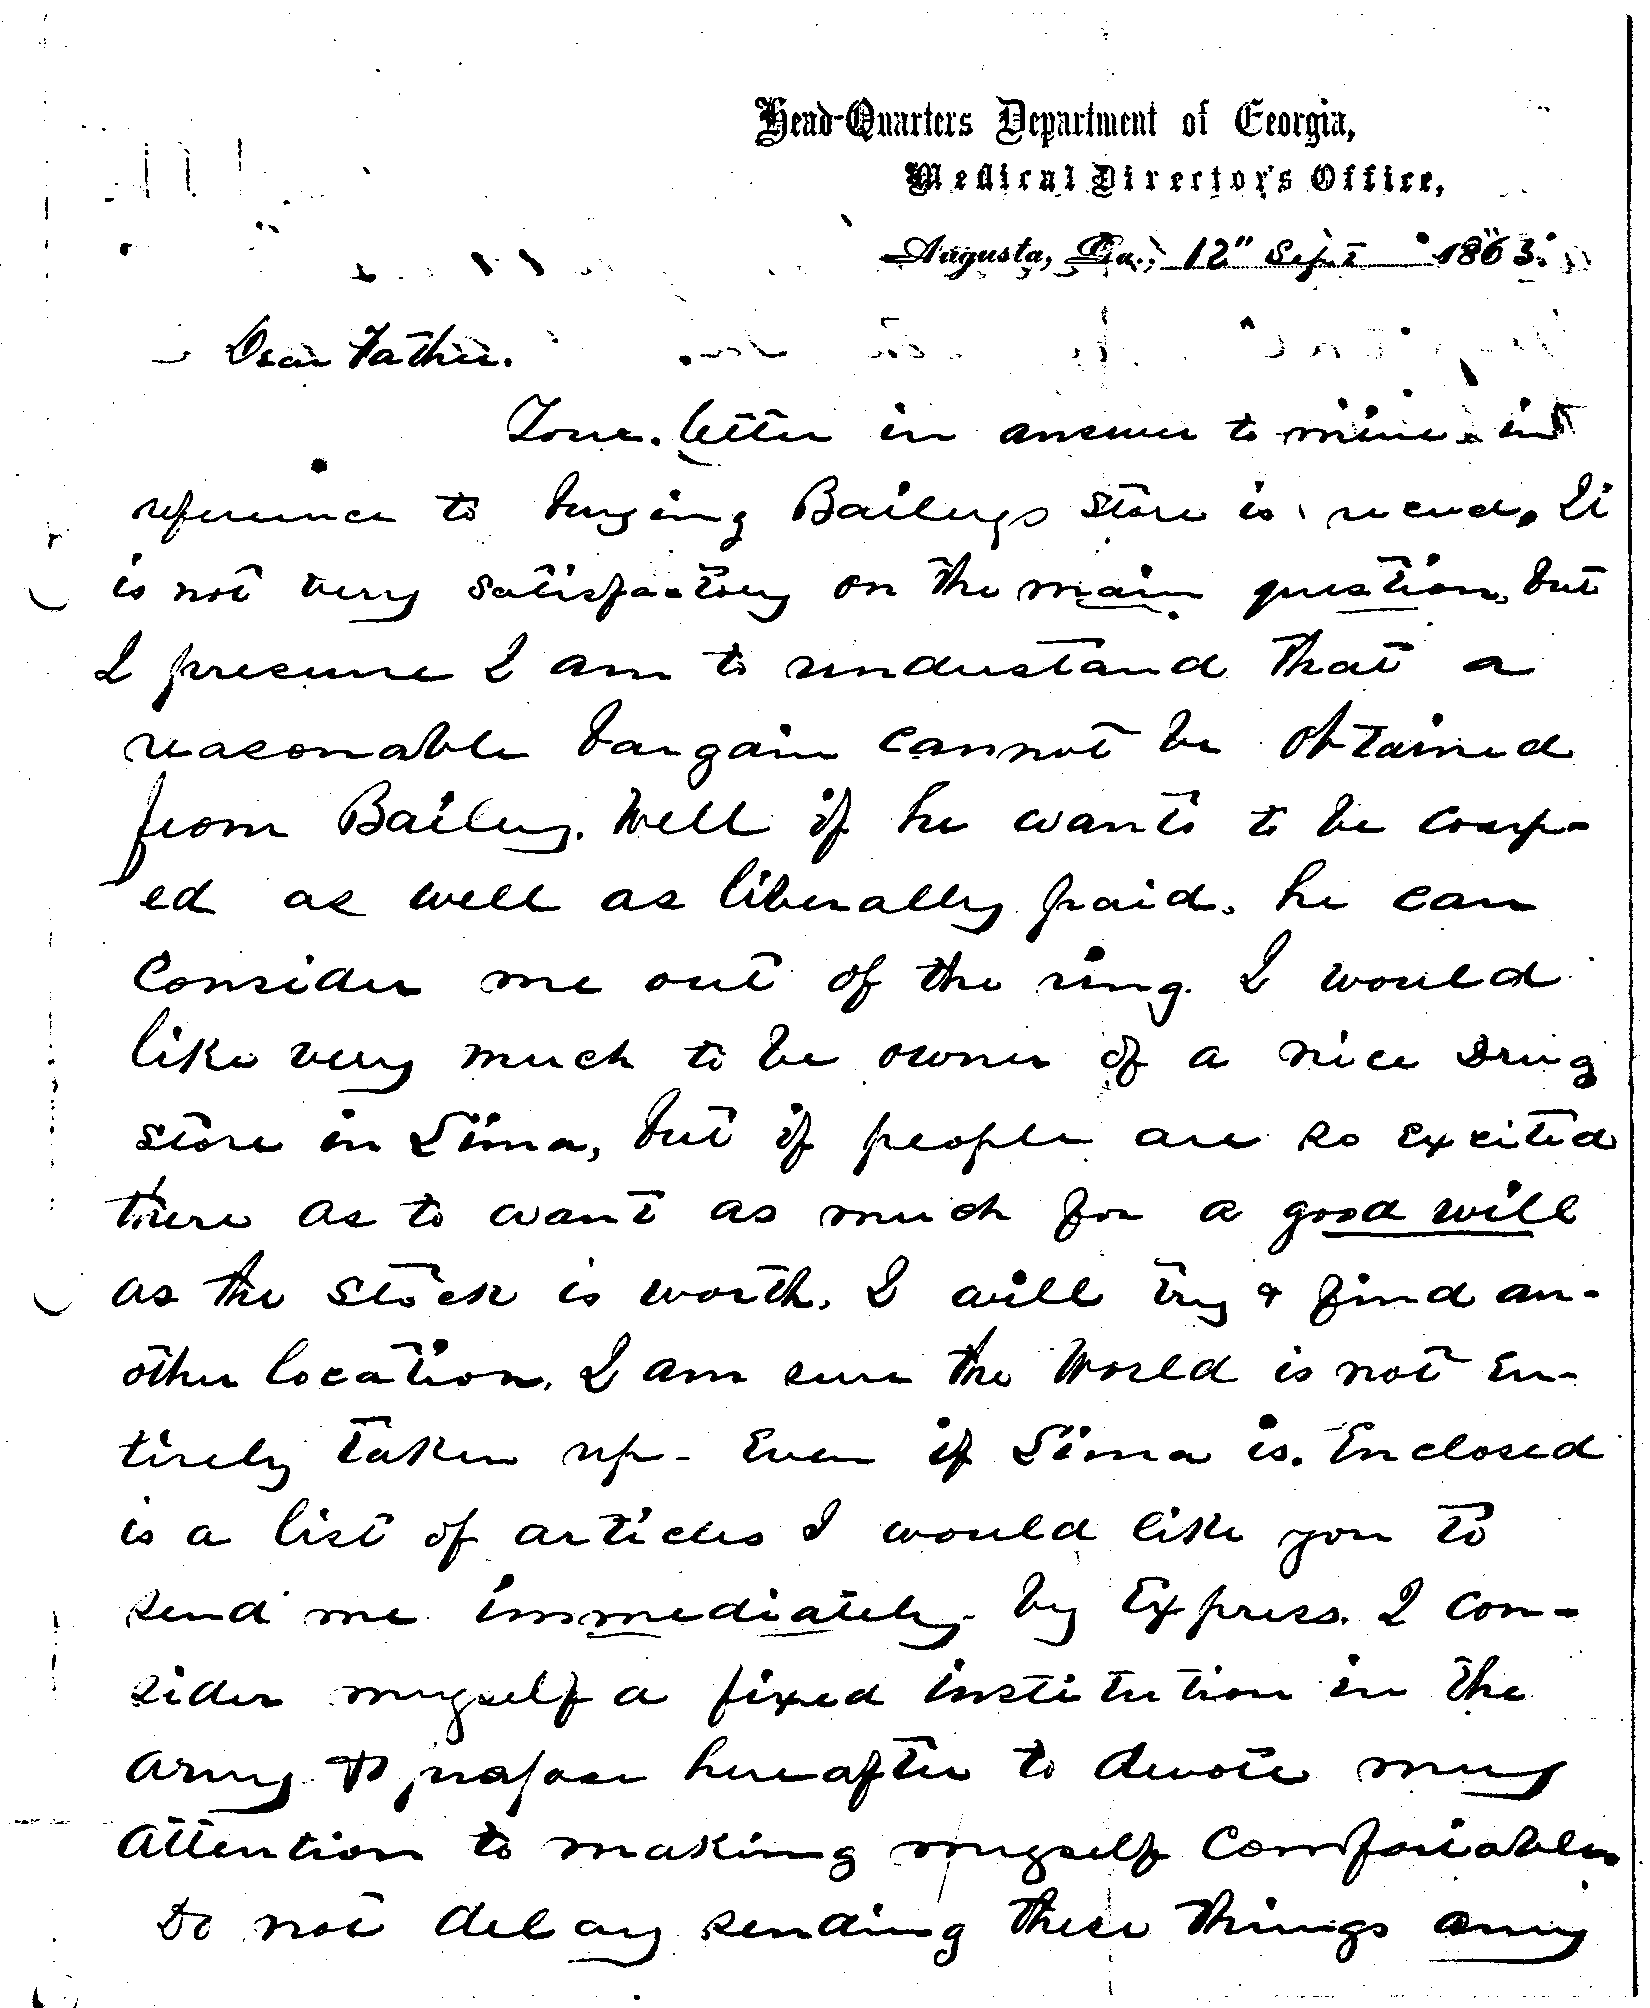 Head-Quarters Department of Georgia,
Medical Director's Office,
Augusta, Ga., 12" Sept 1863.
Dear Father.
Your letter in answer to mine in
reference to buying Baileys store is recvd. It
is not very satisfactory on the main question, but
I presume I am to understand that a
reasonable bargain cannot be obtained
from Bailey. Well if he wants to be
ed as well as liberally paid, he can
Consider me out of the ring. I would
like very much to be owner of a nice Drug
store in Lima, but if people are so excited
there as to want as much for a good will
as the stock is worth. I will try & find an-
other location. I am sure the World is not en-
tirely taken up - Even if Lima is. Enclosed
is a list of articles I would like you to
send me immediately by Express. I con-
sider myself a fixed institution in the
Army & propose hereafter to devote my
attention to making myself Comfortable
Do not delay sending these things any